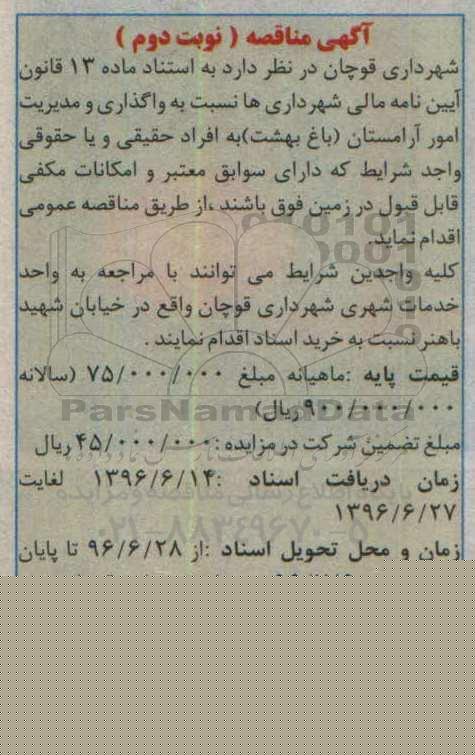 آگهی مناقصه ( نوبت دوم )
شهرداری قوچان در نظر دارد به استناد ماده ۱۳ قانون
آیین نامه مالی شهرداری ها نسبت به واگذاری و مدیریت
امور آرامستان (باغ بهشت)به افراد حقیقی و یا حقوقی
واجد شرایط که دارای سوابق معتبر و امکانات مکفی
قابل قبول در زمین فوق باشند ،از طریق مناقصه عمومی
اقدام نماید.
کلیه واجدین شرایط می توانند با مراجعه به واحد
خدمات شهری شهرداری قوچان واقع در خیابان شهید
باهنر نسبت به خرید اسناد اقدام نمایند .
قیمت پایه :ماهیانه مبلغ ۷۵/۰۰۰/۰۰۰ (سالانه
۹۰۰/۰۰۰/۰۰۰ریال)
ParsNamadData
مبلغ تضمین شرکت در مزایده :۴۵/۰۰۰/۰۰۰ ریال
زمان دریافت اسناد :۱۳۹۶/۶/۱۴ لغایت
۱۳۹۶/۶/۲۷
۰۲۱-۸۸۳۴۹۶۷۰-۵
زمان و محل تحویل اسناد :از ۹۶/۶/۲۸ تا پایان